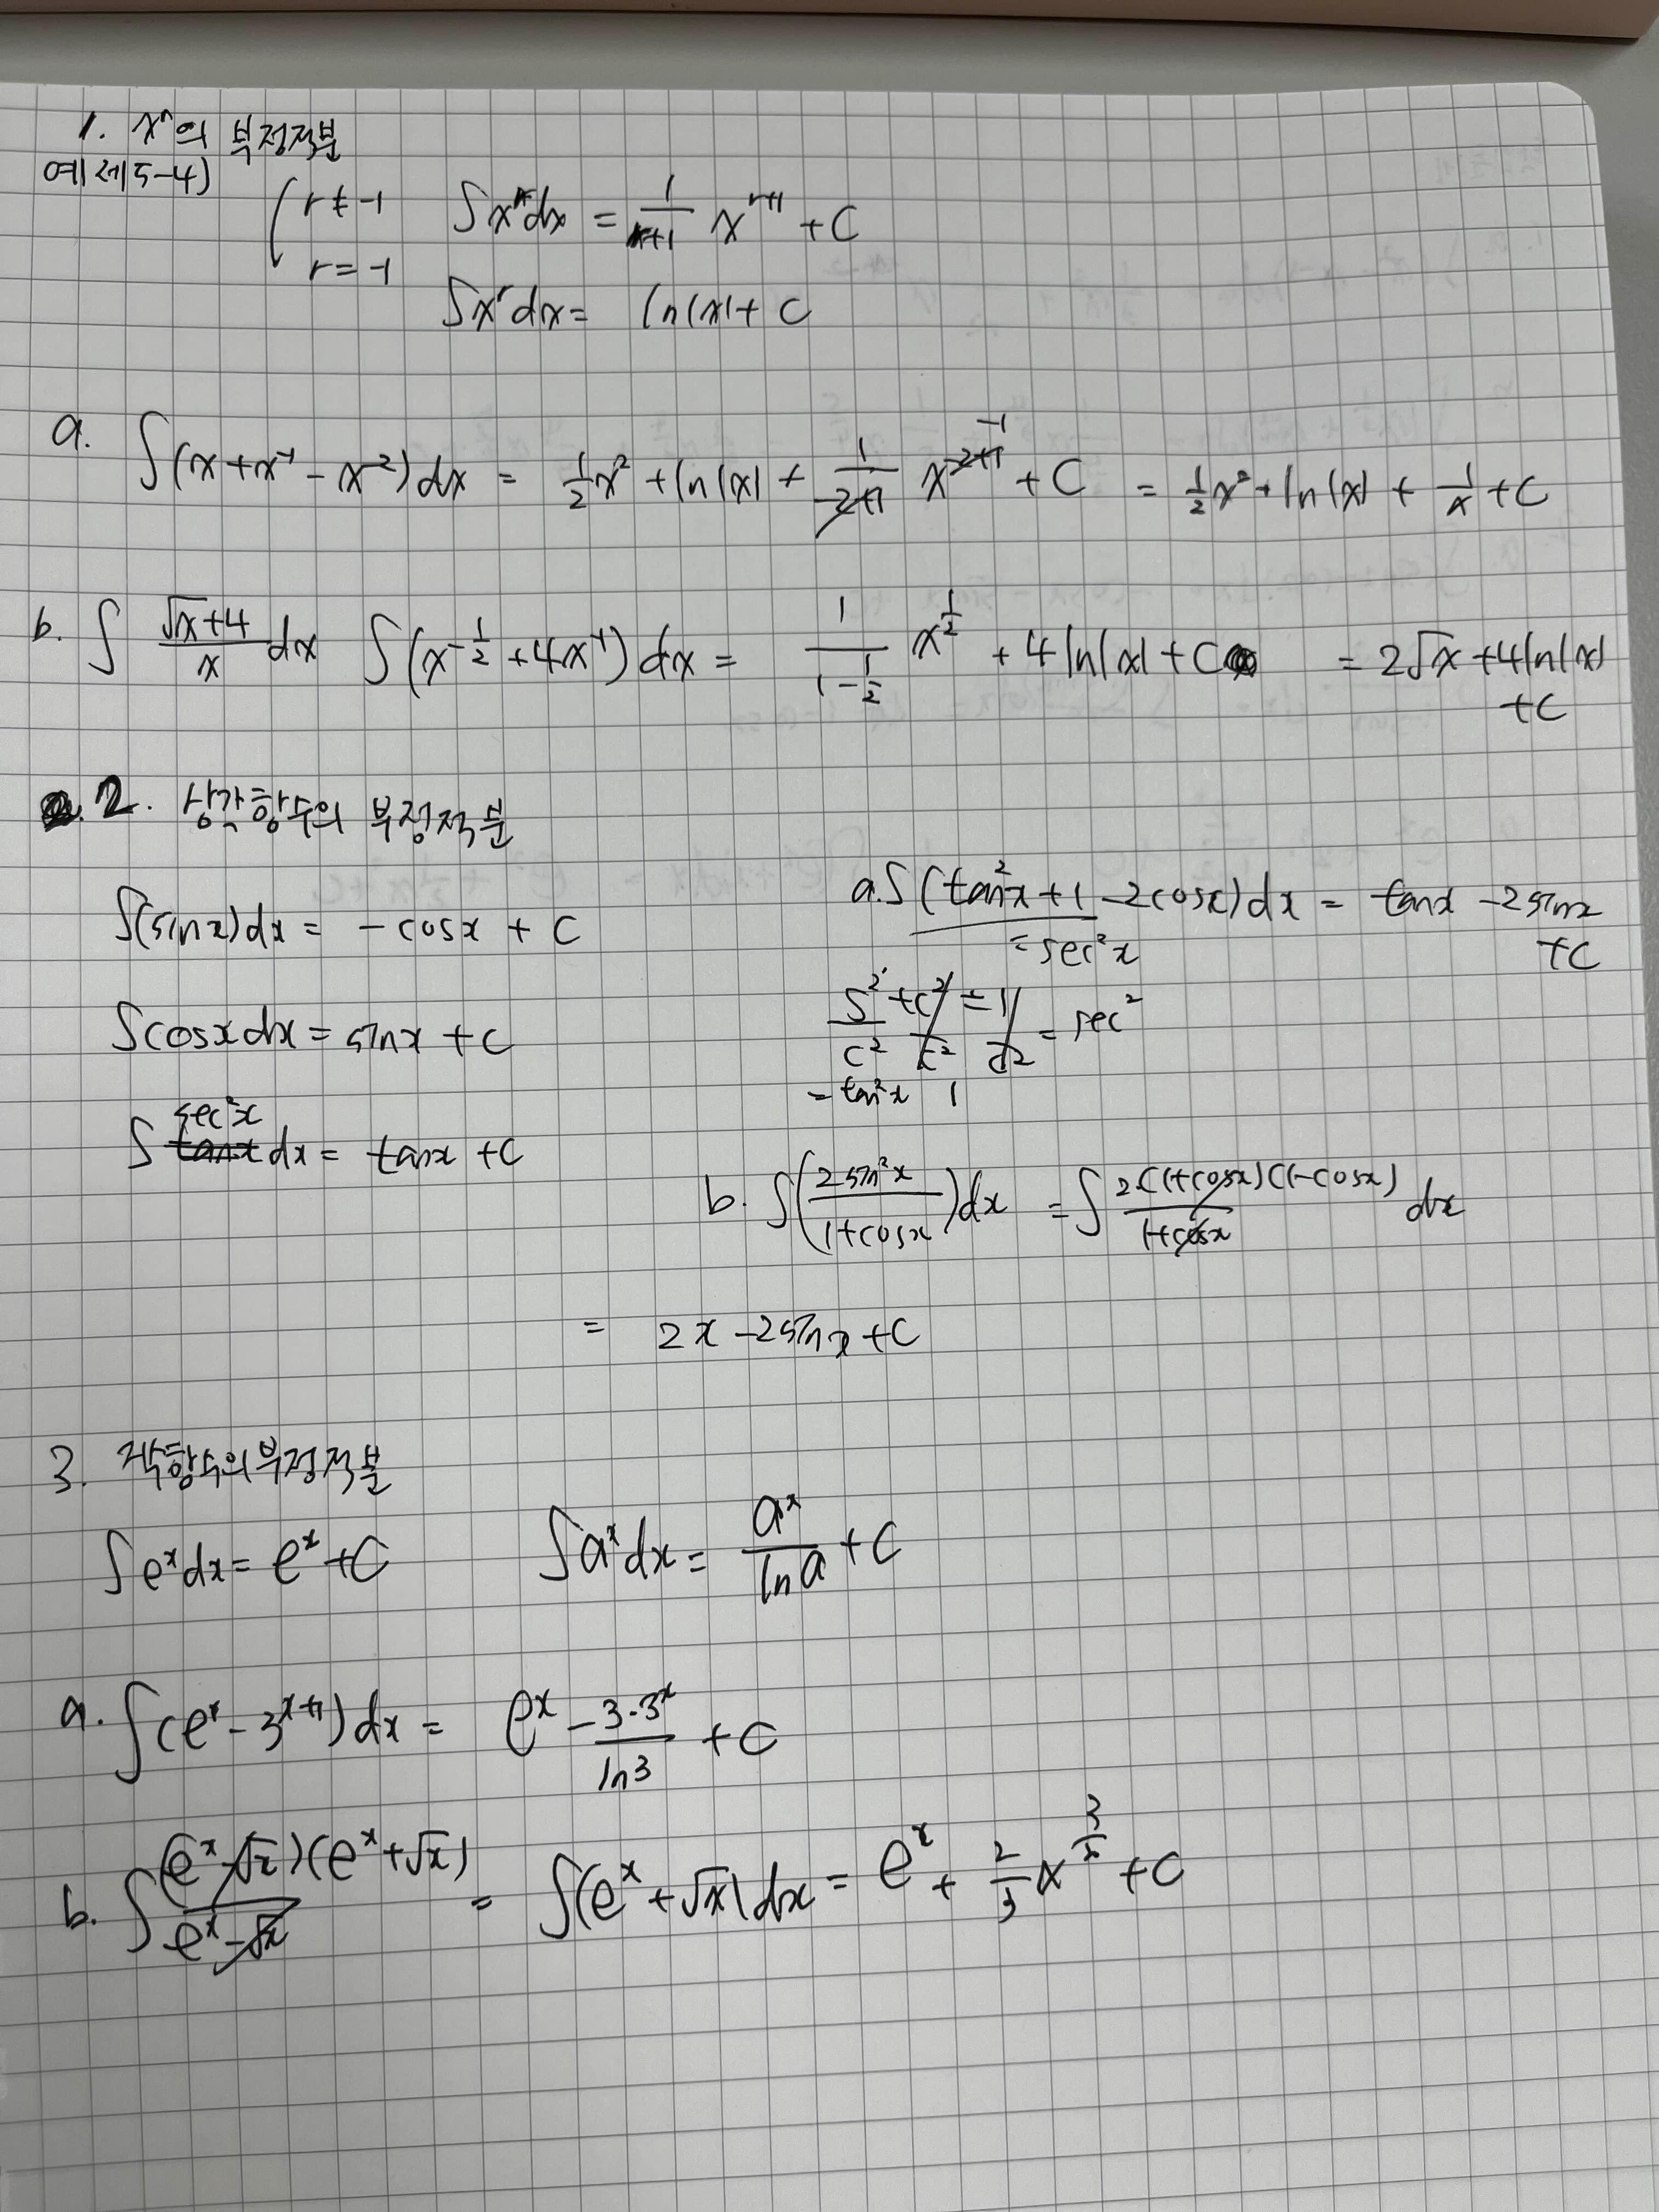 1. xʳ의 부정적분
예제5-4)
r ≠ -1 ∫xʳdx = 1/(r+1) x^(r+1) + C
r = -1 ∫xʳdx = ln|x| + C
a. ∫(x+x⁻¹-x⁻²)dx = 1/2 x² + ln|x| + 1/(-2+1) x^(-2+1) -1 + C = 1/2 x² + ln|x| + 1/x + C
b. ∫ (√x+4)/x dx ∫(x^(-1/2) + 4x⁻¹)dx = 1/(1-1/2) x^(1/2) + 4ln|x| + C = 2√x + 4ln|x|
+C
2. 삼각함수의 부정적분
∫(sinx)dx = -cosx + C
∫cosxdx = sinx + C
∫ sec²x tanx dx = tanx + C
a. ∫(tan²x+1-2cosx)dx = tanx - 2sinx
+C
= sec²x
S²/C² + C²/C² = 1/C² = sec²
= tan²x 1
b. ∫(2sin²x/(1+cosx))dx = ∫ 2(1+cosx)(1-cosx)/(1+cosx) dx
= 2x - 2sinx + C
3. 지수함수의 부정적분
∫eˣdx = eˣ + C ∫aˣdx = aˣ/lna + C
a. ∫(eˣ-3^(x+1))dx = eˣ - 3·3ˣ/ln3 + C
b. ∫ (eˣ-√x)(eˣ+√x)/(eˣ-√x) = ∫(eˣ+√x)dx = eˣ + 2/3 x^(3/2) + C